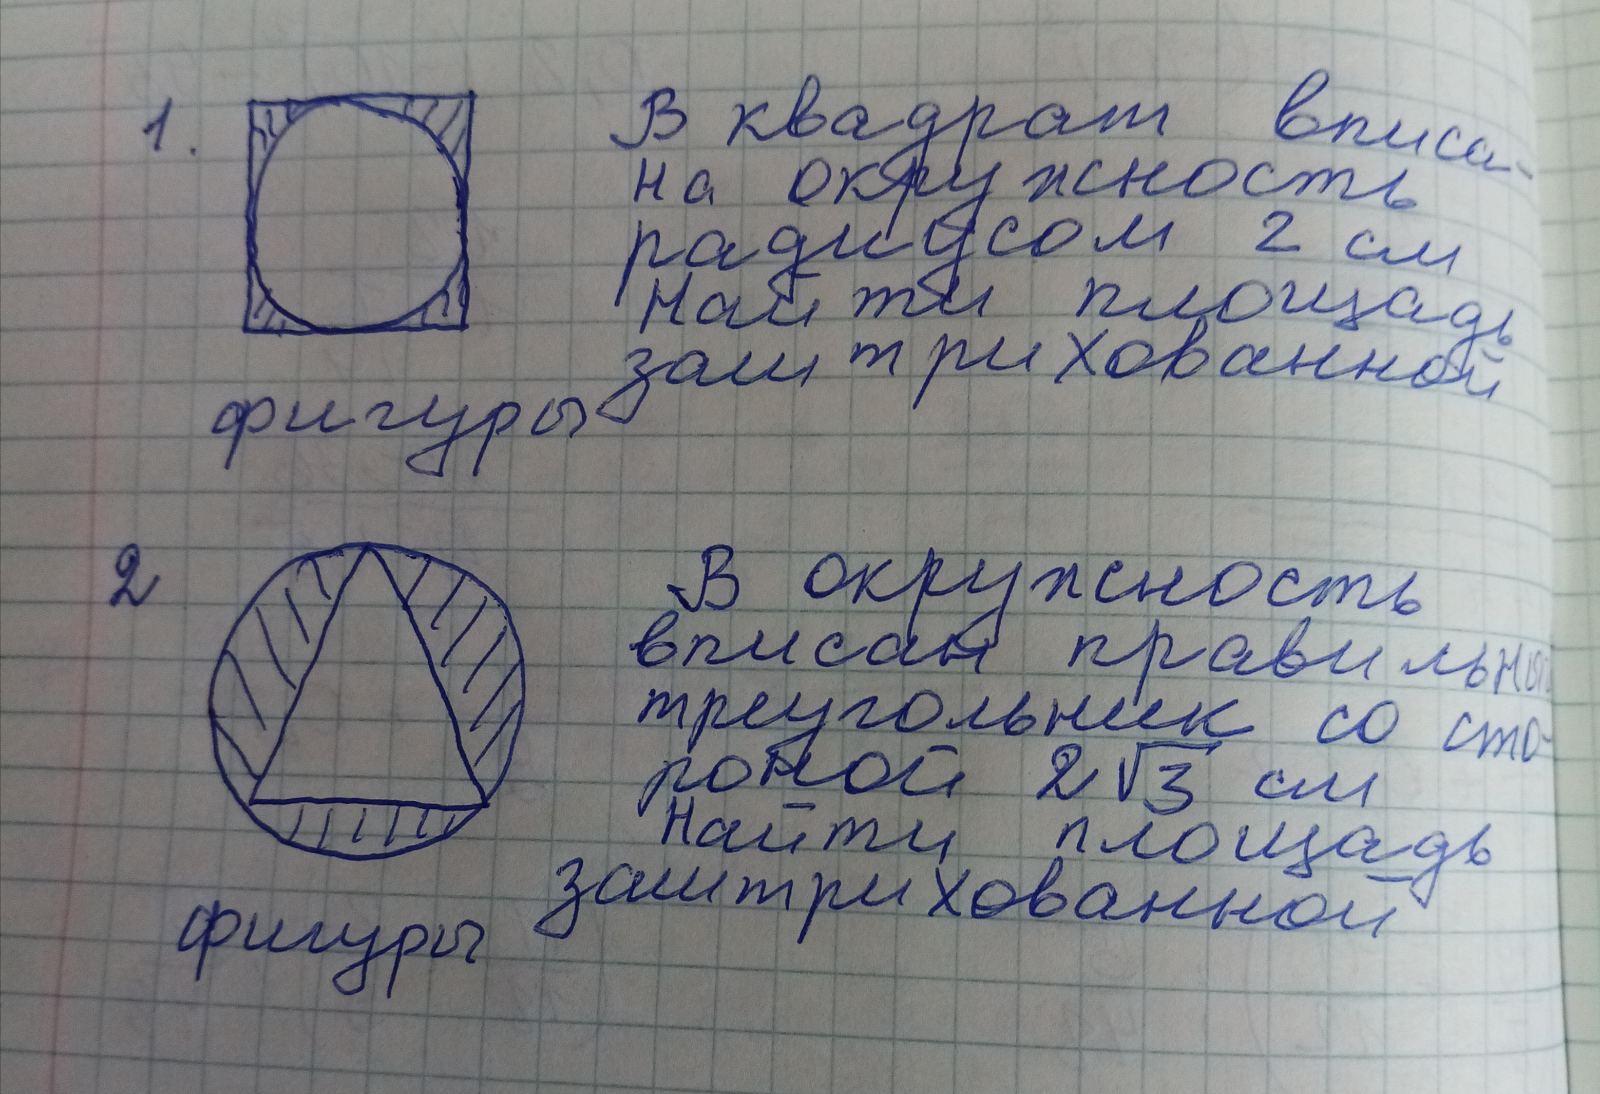 1. В квадрат вписа-
на окружность
радиусом 2 см
Найти площадь
заштрихованной
фигуры
2 В окружность
вписан правильный
треугольник со сто-
роной 2√3 см
Найти площадь
заштрихованной
фигуры